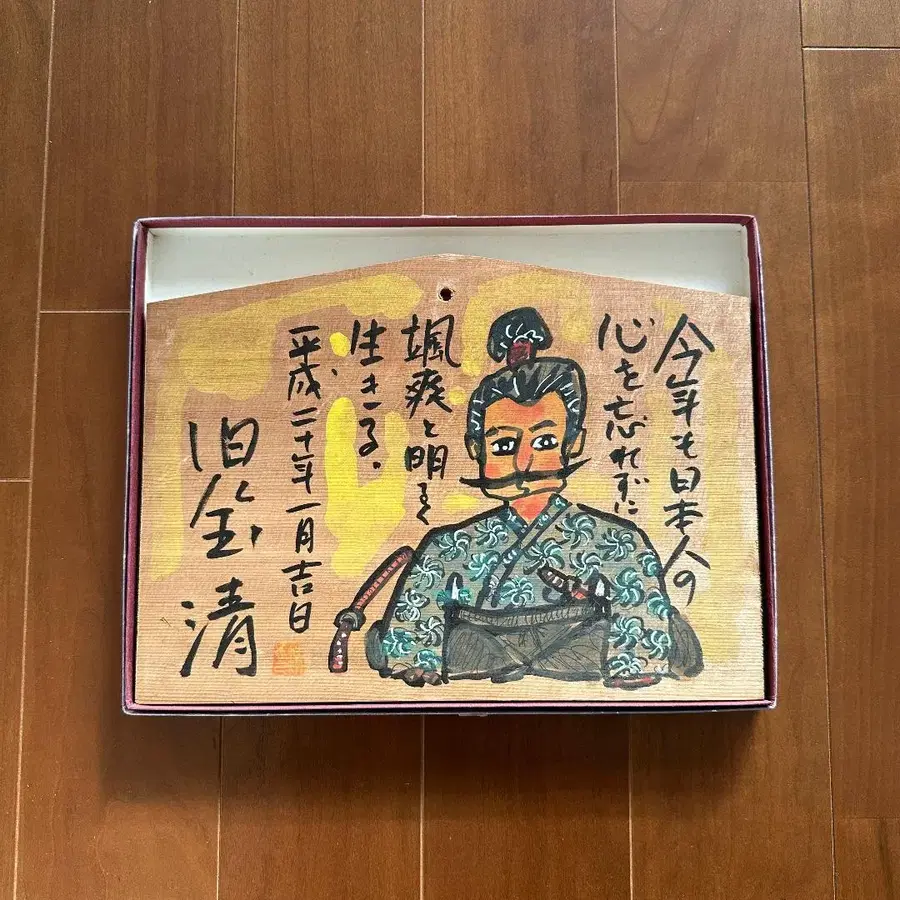 今年も日本人の
心を忘れずに
颯爽と明るく
生きる、
平成二十年一月吉日
清